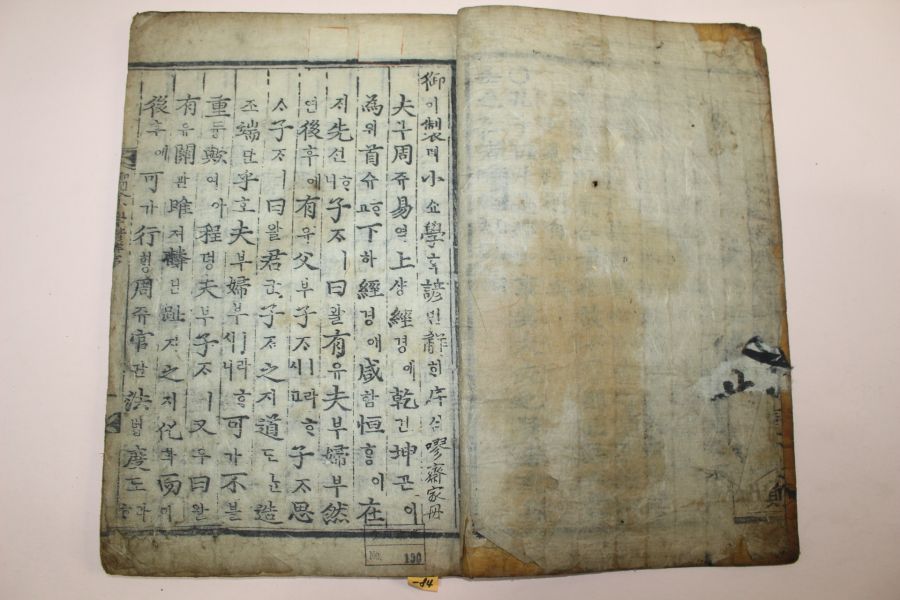 御製小쇼學ᄒᆞᆨ諺언解ᄒᆡ序셔 齋家冊
夫부周쥬易역上샹經경이乾건坤곤이
為위首슈ᄒᆞ고下하經경애咸함恒ᄒᆞᆼ이在
ᄌᆡ先션ᄒᆞ니子ᄌᆞㅣ曰왈有유夫부婦부然
연後후에有유父부子ᄌᆞㅣ라ᄒᆞ시고子ᄌᆞ思
ᄉᆞ子ᄌᆞㅣ曰왈君군子ᄌᆞ之지道도ᄂᆞᆫ造
조端단乎호夫부婦부ㅣ라ᄒᆞ시니可가不블
重듕歟여아程뎡夫부子ᄌᆞㅣ又우曰왈
有유關관雎져麟린趾지之지化화而이
後후에可가行ᄒᆡᆼ周쥬官관法법度도라
No. 190
-84